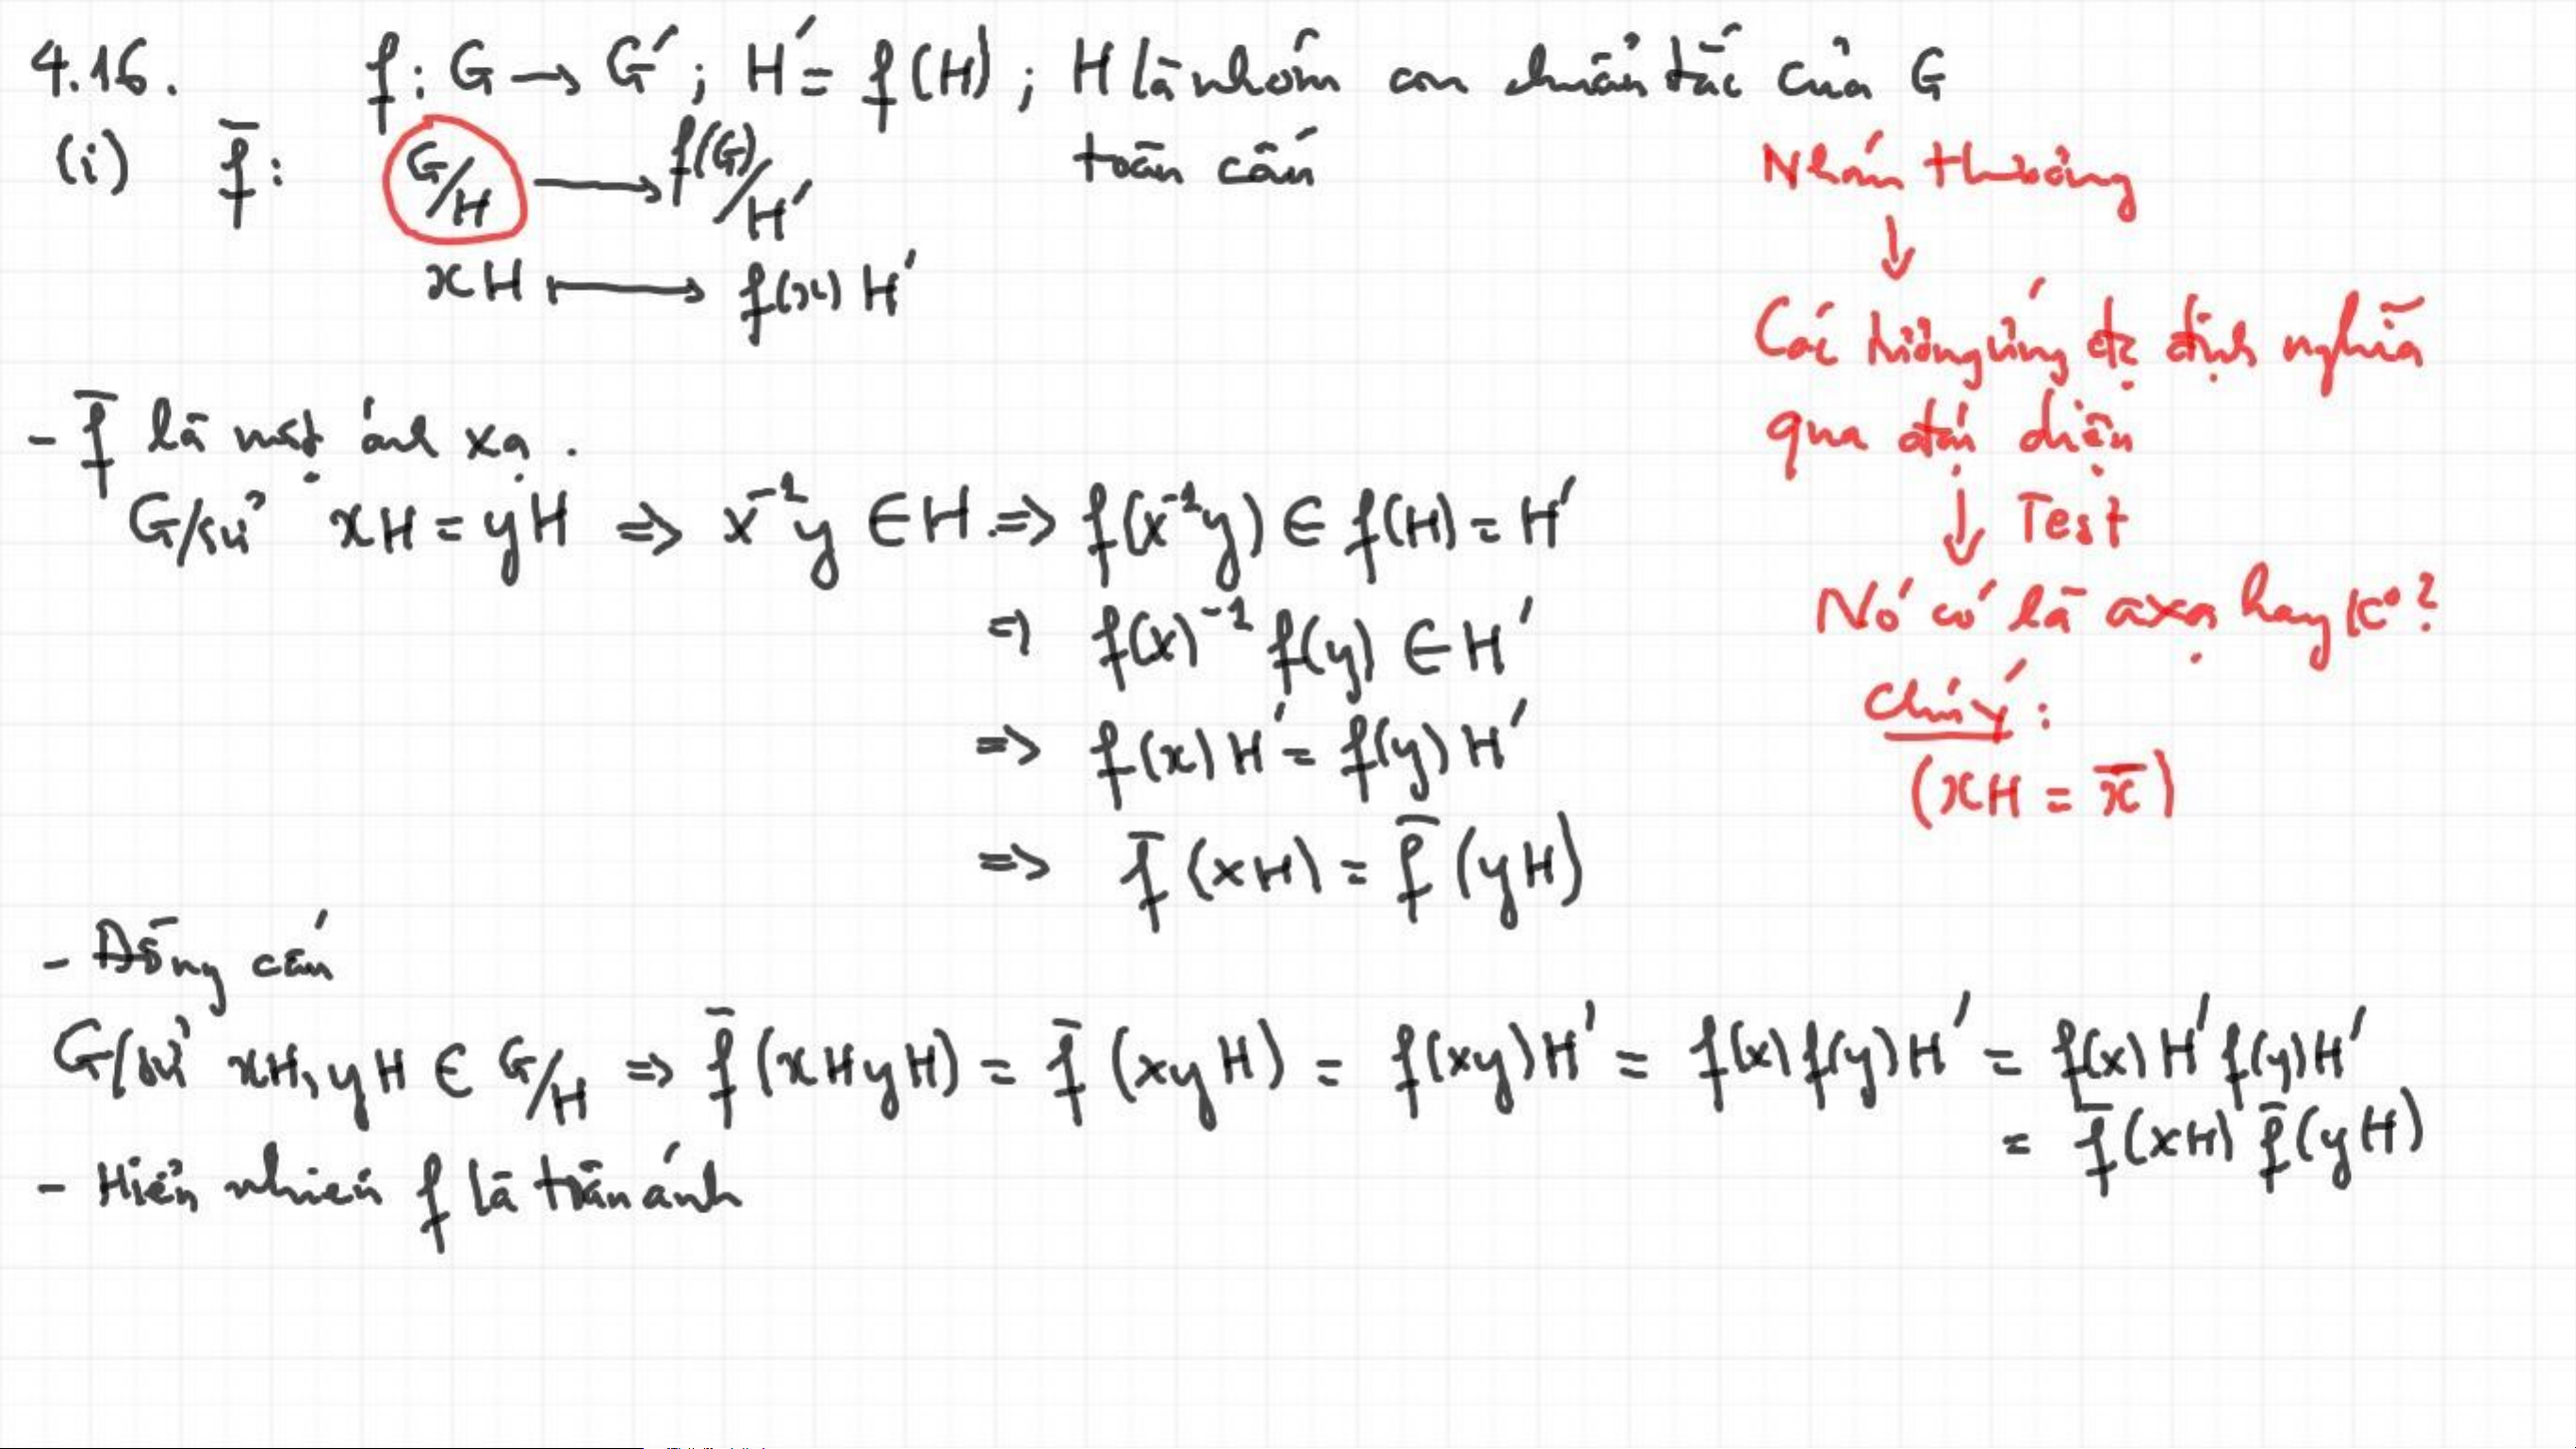 4.16. f: G → G'; H' = f(H); H là nhóm con chuẩn tắc của G
(i) f̄: G/H → f(G)/H' toàn cấu
xH ↦ f(x)H'
Nhóm thương
↓
Các tương ứng đc định nghĩa
qua đại diện
↓ Test
Nó có là axạ hay ko?
Chú ý:
(xH = x̄)
- f̄ là một ánh xạ.
G/sử xH = yH => x⁻¹y ∈ H => f(x⁻¹y) ∈ f(H) = H'
=> f(x)⁻¹ f(y) ∈ H'
=> f(x)H' = f(y)H'
=> f̄(xH) = f̄(yH)
- Đồng cấu
G/sử xH, yH ∈ G/H => f̄(xHyH) = f̄(xyH) = f(xy)H' = f(x)f(y)H' = f(x)H'f(y)H'
= f̄(xH) f̄(yH)
- Hiển nhiên f là toàn ánh